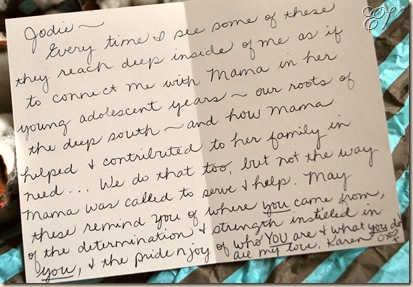 Jodie ~
Every time I see some of these
they reach deep inside of me as if
to connect me with Mama in her
young adolescent years ~ our roots of
the deep south ~ and how Mama
helped & contributed to her family in
need.... We do that too, but not the way
Mama was called to serve & help. May
these remind you of where you came from,
of the determination & strength instilled in
you, & the pride n joy of who YOU are & what you do
All my love, Karen xoxo